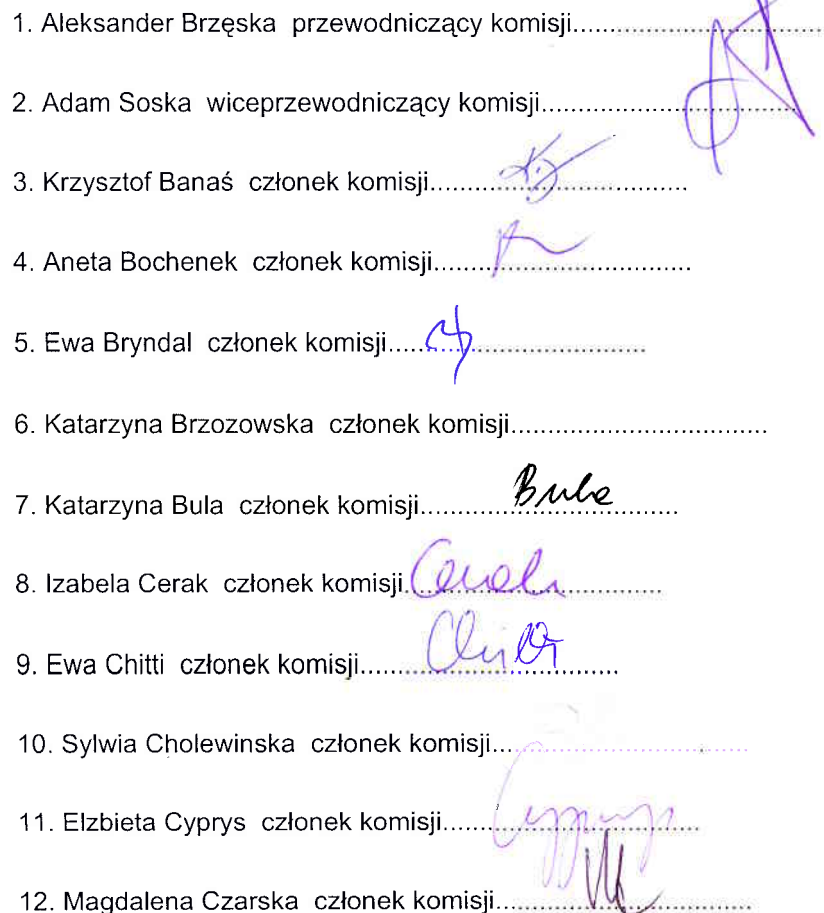 1. Aleksander Brzęska przewodniczący komisji....................................
2. Adam Soska wiceprzewodniczący komisji...................................
3. Krzysztof Banaś członek komisji...................................
4. Aneta Bochenek członek komisji...................................
5. Ewa Bryndal członek komisji...................................
6. Katarzyna Brzozowska członek komisji...................................
7. Katarzyna Bula członek komisji................................... Bula
8. Izabela Cerak członek komisji................................... Cerak
9. Ewa Chitti członek komisji...................................
10. Sylwia Cholewinska członek komisji...................................
11. Elzbieta Cyprys członek komisji...................................
12. Magdalena Czarska członek komisji...................................